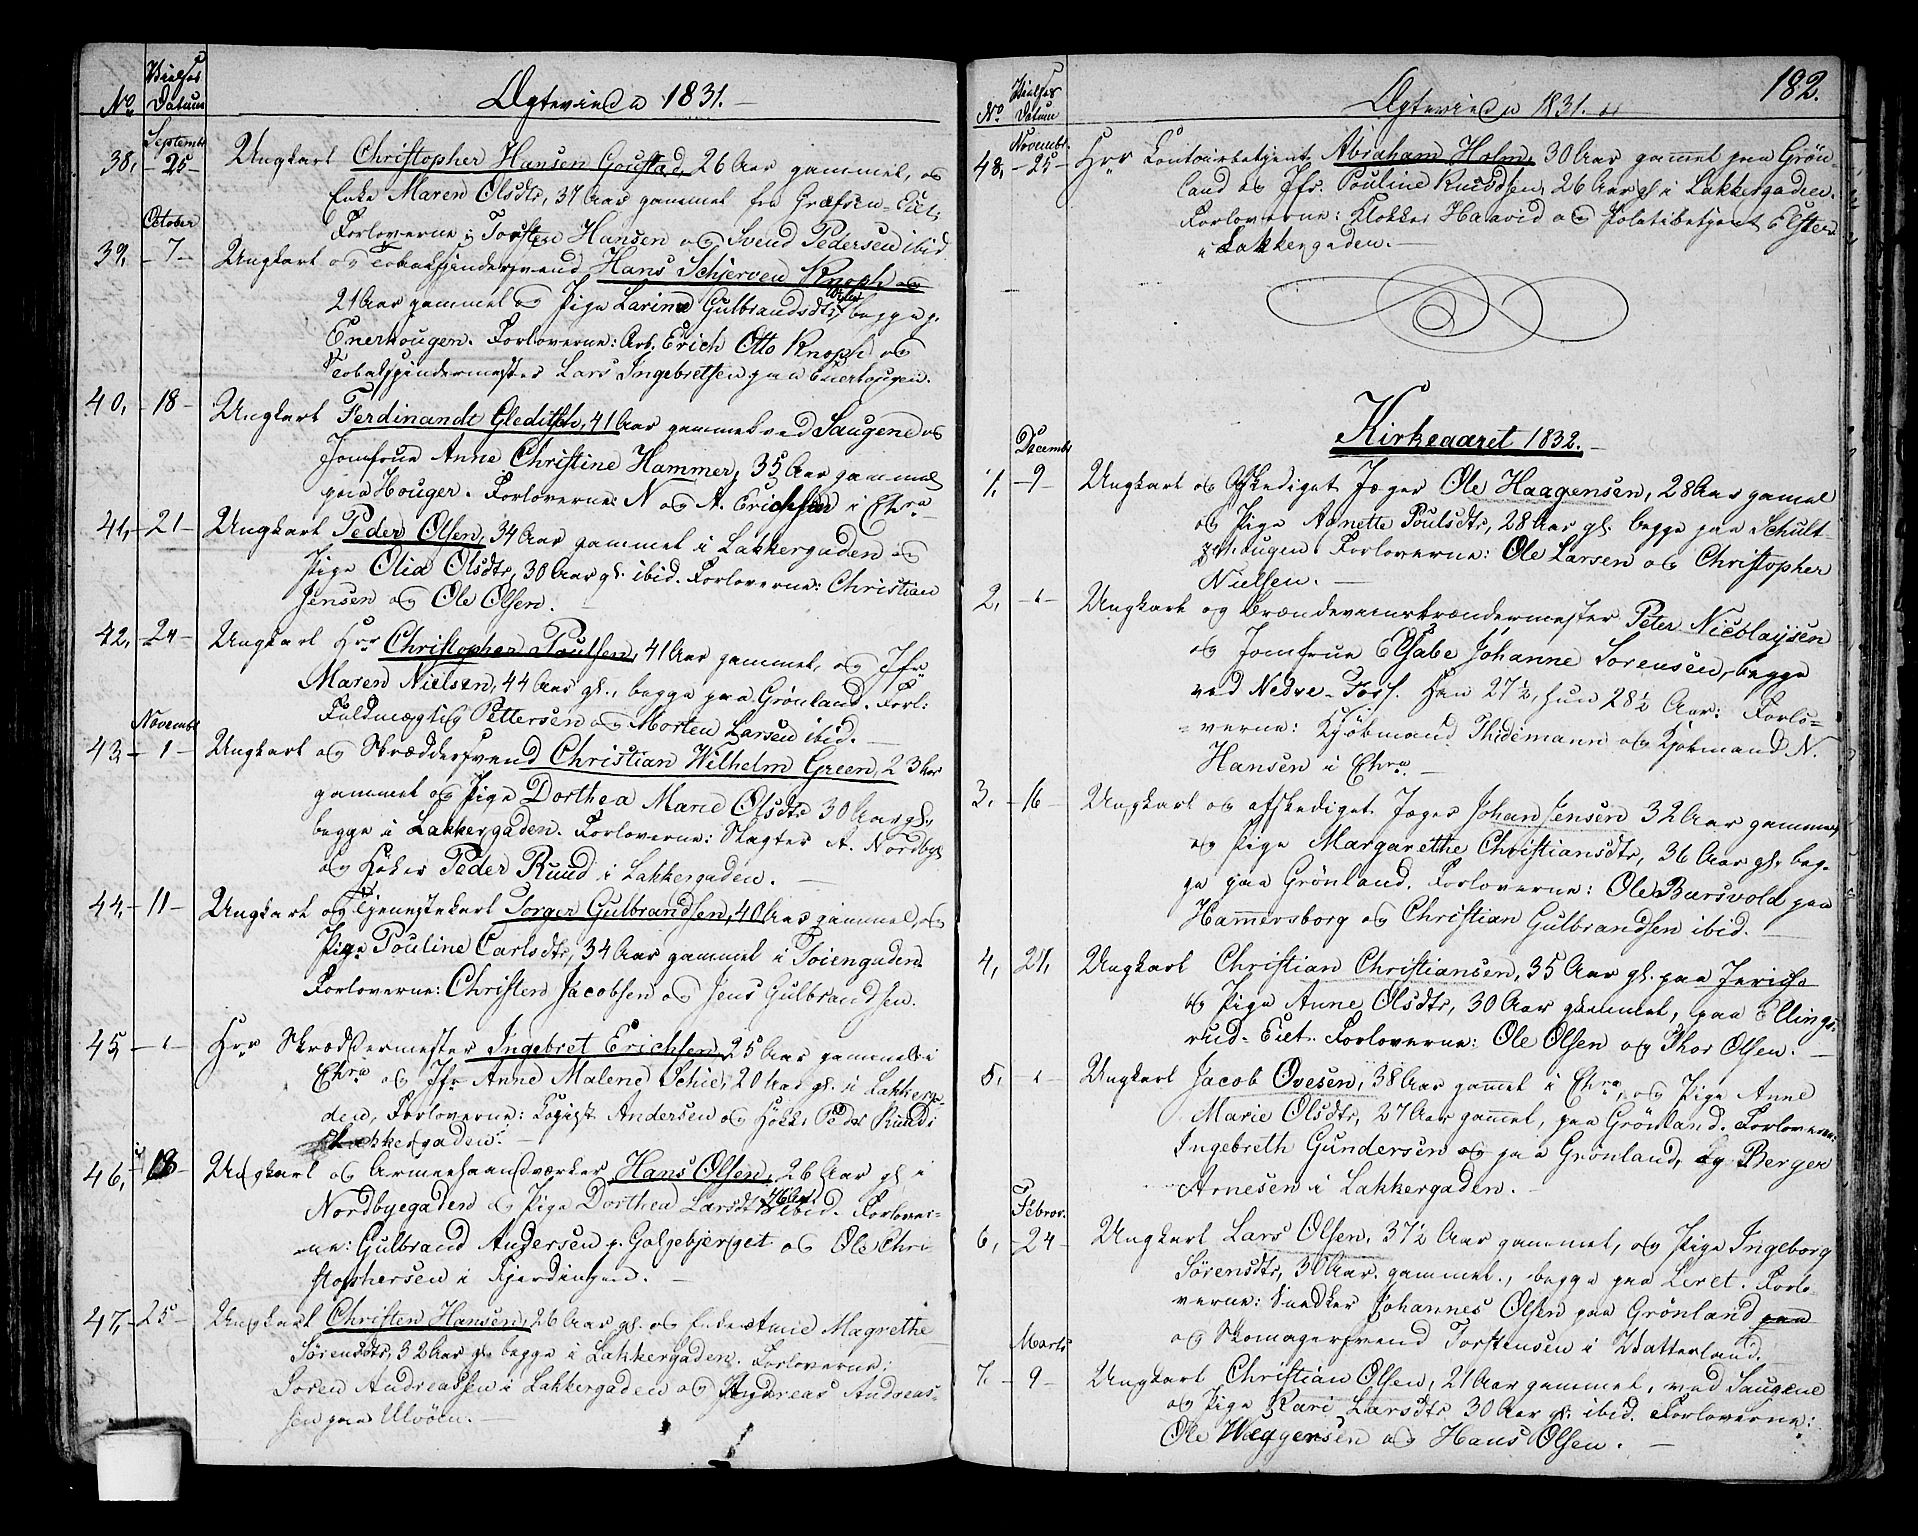 No. Vielses Datum Ægteviede 1831.
Septembr
38, 25 Ungkarl Christopher Hansen Goustad, 26 Aar gammel, og
Enke Maren Olsdtr, 37 Aar gammel fra Græfsen-Eiet;
Forloverne: Torsten Hansen og Svend Pedersen ibid
October
39, 7 Ungkarl og Tobakspindersvend Hans Schjerven Knoph og
21 Aar gammel og Pige Larine Gulbrandsdtr, begge p.
Enerhougen. Forloverne: Arb. Erich Otto Knoph og
Tobakspindermester Lars Ingebretsen paa Enerhougen.
40, 18 Ungkarl Ferdinandt Gleditsch, 41 Aar gammel ved Saugene og
Jomfrue Anne Christine Hammer, 35 Aar gammel
paa Houger. Forloverne: N og A. Erichsen i Chra
41, 21 Ungkarl Peder Olsen, 34 Aar gammel i Lakkergaden og
Pige Olia Olsdtr, 30 Aar gl. ibid. Forloverne: Christian
Jensen og Ole Olsen.
42, 24 Ungkarl Hrr Christopher Poulsen, 41 Aar gammel, og Jfr
Maren Nielsen, 44 Aar gl., begge paa Grønland. Forl:
Fuldmægtig Pettersen og Morten Larsen ibid.
Novembr
43 1 Ungkarl og Skræddersvend Christian Wilhelm Green, 23 Aar
gammel og Pige Dorthea Marie Olsdtr 30 Aar gl.
begge i Lakkergaden. Forloverne: Slagter A. Nordby
og Høker Peder Ruud i Lakkergaden.
44, 11 Ungkarl og Tjenestekarl Torger Gulbrandsen, 40 Aar gammel, og
Pige Pouline Carlsdtr, 34 Aar gammel i Toiengaden
Forloverne: Christen Jacobsen og Jens Gulbrandsen.
45 " Hrr Skræddermester Ingebret Erichsen, 25 Aar gammel i
Chra og Jfr Anne Malene Schie, 20 Aar gl. i Lakkerga-
den, Forloverne: Copist Andersen og Høker Peder Ruud i
Lakkergaden.
46, 18 Ungkarl og Armeehaandværker Hans Olsen, 26 Aar gl i
Nordbyegaden og Pige Dorthea Larsdtr 46 Aar ibid. Forlover-
ne: Gulbrand Andersen p. Galgebjerget og Ole Chri
stophersen i Fjerdingen.
47, 25 Ungkarl Christen Hansen, 26 Aar gl. og Enke Amie Magrethe
Sörensdtr, 32 Aar gl. begge i Lakkergaden. Forloverne:
Soren Andreassen i Lakkergaden og Andreas Andreas-
sen paa Ulvöen.
182.
No. Vielses Datum Ægteviede 1831.
Novembr
48, 25 Hrr Contoirbetjent Abraham Holm, 30 Aar gammel paa Grøn-
land og Jfr. Pouline Knudsen, 26 Aar gl i Lakkergaden.
Forloverne: Klokker Haavid og Politibetjent Elster
i Lakkergaden.
Kirkeaaret 1832.
Decembr
1, 9 Ungkarl og afskediget Jæger Ole Haagensen, 28 Aar gamel
og Pige Agnette Poulsdtr, 28 Aar gl. begge paa Schult-
zehaugen. Forloverne: Ole Larsen og Christopher
Nielsen.
2, " Ungkarl og Brændeviinsbrændermester Peter Nicolaysen
og Jomfrue Elsabe Johanne Sorensen, begge
ved Nedre-Fosf. Han 27½, hun 28½ Aar: Forlo-
verne: Kjöbmand Thidemann og Kjöbmand N.
Hansen i Chra.
3, 16 Ungkarl og afskediget Jæger Johan Jensen 32 Aar gammel,
og Pige Margarethe Christiansdtr, 36 Aar gl. beg-
ge paa Grönland. Forloverne: Ole Barsvold paa
Hammersborg og Christian Gulbrandsen ibid.
4, 21, Ungkarl Christian Christiansen, 35 Aar gl. paa Jericho
og Pige Anne Olsdtr, 30 Aar gammel, paa Ellings-
rud-Eiet. Forloverne: Ole Olsen og Thor Olsen.
5, " Ungkarl Jacob Ovesen, 38 Aar gammel i Chra, og Pige Anne
Marie Olsdtr, 27 Aar gammel, paa Grönland. Forloverne:
Ingebreth Gundersen og paa Grönland, og Berger
Arnesen i Lakkergaden.
Februar.
6, 24 Ungkarl Lars Olsen, 37½ Aar gammel, og Pige Ingeborg
Sörensdtr, 30 Aar. gammel., begge paa Leret. Forlo-
verne: Snedker Johannes Olsen paa Grönland paa
og Skomagersvend Torstensen i Vatterland.
Marts
7. 9 Ungkarl Christian Olsen, 21 Aar gammel, ved Saugene
og Pige Kari Larsdtr 30 Aar gl. ibid. Forloverne:
Ole Waggersen og Hans Olsen.